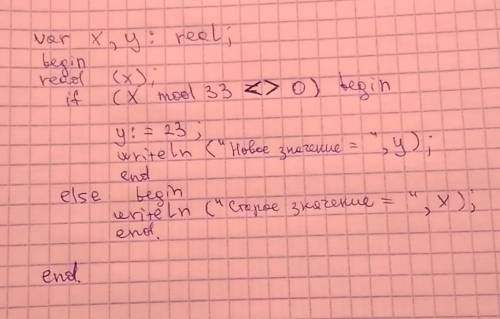 var x, y: real;
begin
read (x);
if (X mod 33 <> 0) begin
y:= 23;
writeln ("Новое значение = ", y);
end
else begin
writeln ("Старое значение = ", x);
end.
end.